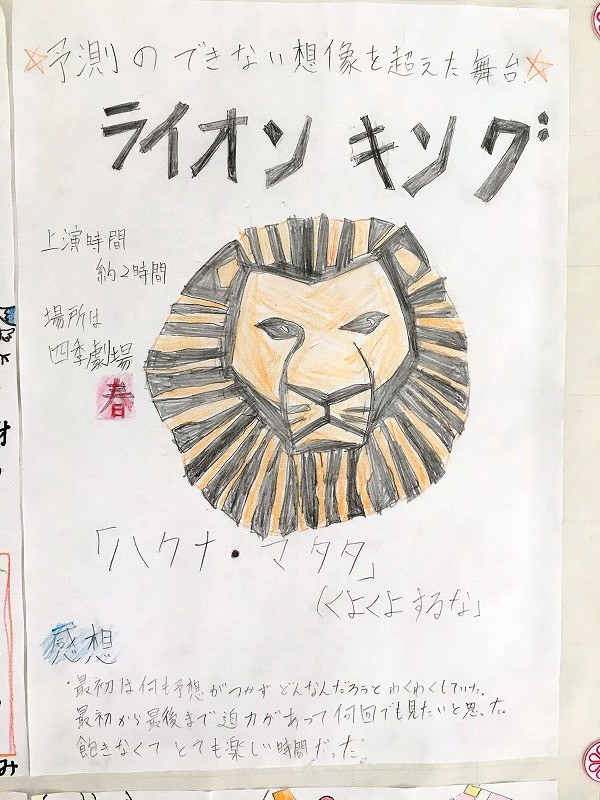 ☆予測のできない想像を超えた舞台☆
ライオンキング
上演時間
約2時間
場所は
四季劇場
春
「ハクナ・マタタ」
(くよくよするな」
感想
・最初は何も予想がつかずどんなんだろうとわくわくしていた。
最初から最後まで迫力があって何回でも見たいと思った。
飽きなくてとても楽しい時間だった。
み